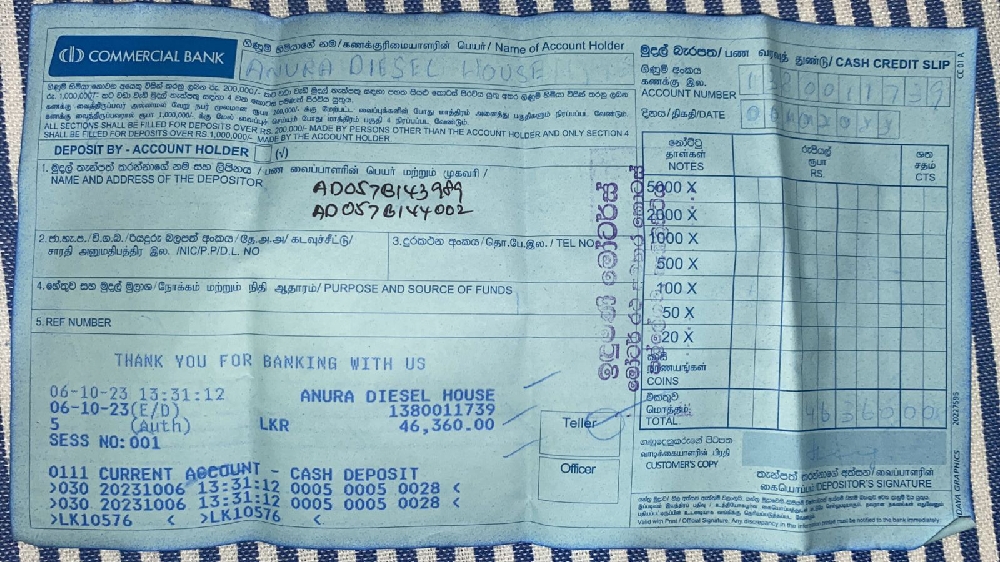 COMMERCIAL BANK
ගිණුම් හිමියාගේ නම/கணக்குரிமையாளரின் பெயர்/ Name of Account Holder
ANURA DIESEL HOUSE
මුදල් බැරපත/ பண வரவுத் துண்டு/ CASH CREDIT SLIP
CC 01 A
ගිණුම් අංකය
கணக்கு இல.
ACCOUNT NUMBER
දිනය/திகதி/DATE
ALL SECTIONS SHALL BE FILLED FOR DEPOSITS OVER RS. 200,000/- MADE BY PERSONS OTHER THAN THE ACCOUNT HOLDER AND ONLY SECTION 4
SHALL BE FILLED FOR DEPOSITS OVER RS 1,000,000/- MADE BY THE ACCOUNT HOLDER
DEPOSIT BY - ACCOUNT HOLDER (√)
1. මුදල් තැන්පත් කරන්නාගේ නම සහ ලිපිනය / பண வைப்பாளரின் பெயர் மற்றும் முகவரி /
NAME AND ADDRESS OF THE DEPOSITOR
AD057B143989
AD057B144002
2. ජා.හැ.ප./වි.ග.බ./රියදුරු බලපත් අංකය/தே.அ.அ/ கடவுச்சீட்டு/
சாரதி அனுமதிபத்திர இல. /NIC/P.P/D.L. NO
3. දුරකථන අංකය/தொ.பே.இல./ TEL NO
4. හේතුව සහ මුදල් මූලාශ්‍ර/நோக்கம் மற்றும் நிதி ஆதாரம்/ PURPOSE AND SOURCE OF FUNDS
5. REF NUMBER
නෝට්ටු
தாள்கள்
NOTES
රුපියල්
ரூபா
RS
ශත
சதம்
CTS
5000 X
2000 X
1000 X
500 X
100 X
50 X
20 X
නாணயங்கள்
COINS
එකතුව
மொத்தம்
TOTAL
4636000
THANK YOU FOR BANKING WITH US
06-10-23 13:31:12 ANURA DIESEL HOUSE
06-10-23(E/D) 1380011739
5 (Auth) LKR 46,360.00
SESS NO:001
0111 CURRENT ACCOUNT - CASH DEPOSIT
>030 20231006 13:31:12 0005 0005 0028 <
>030 20231006 13:31:12 0005 0005 0028 <
>LK10576 < >LK10576 <
Teller
Officer
ගනුදෙනුකරුගේ පිටපත
வாடிக்கையாளரின் பிரதி
CUSTOMER'S COPY
තැන්පත් කරන්නාගේ අත්සන/வைப்பாளரின்
கையொப்பம்/DEPOSITOR'S SIGNATURE
Valid with Print / Official Signature. Any discrepancy in this information must be notified to the bank immediately.
UDAYA GRAPHICS 20227595